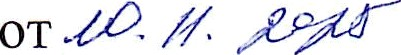 от 10.11.2025